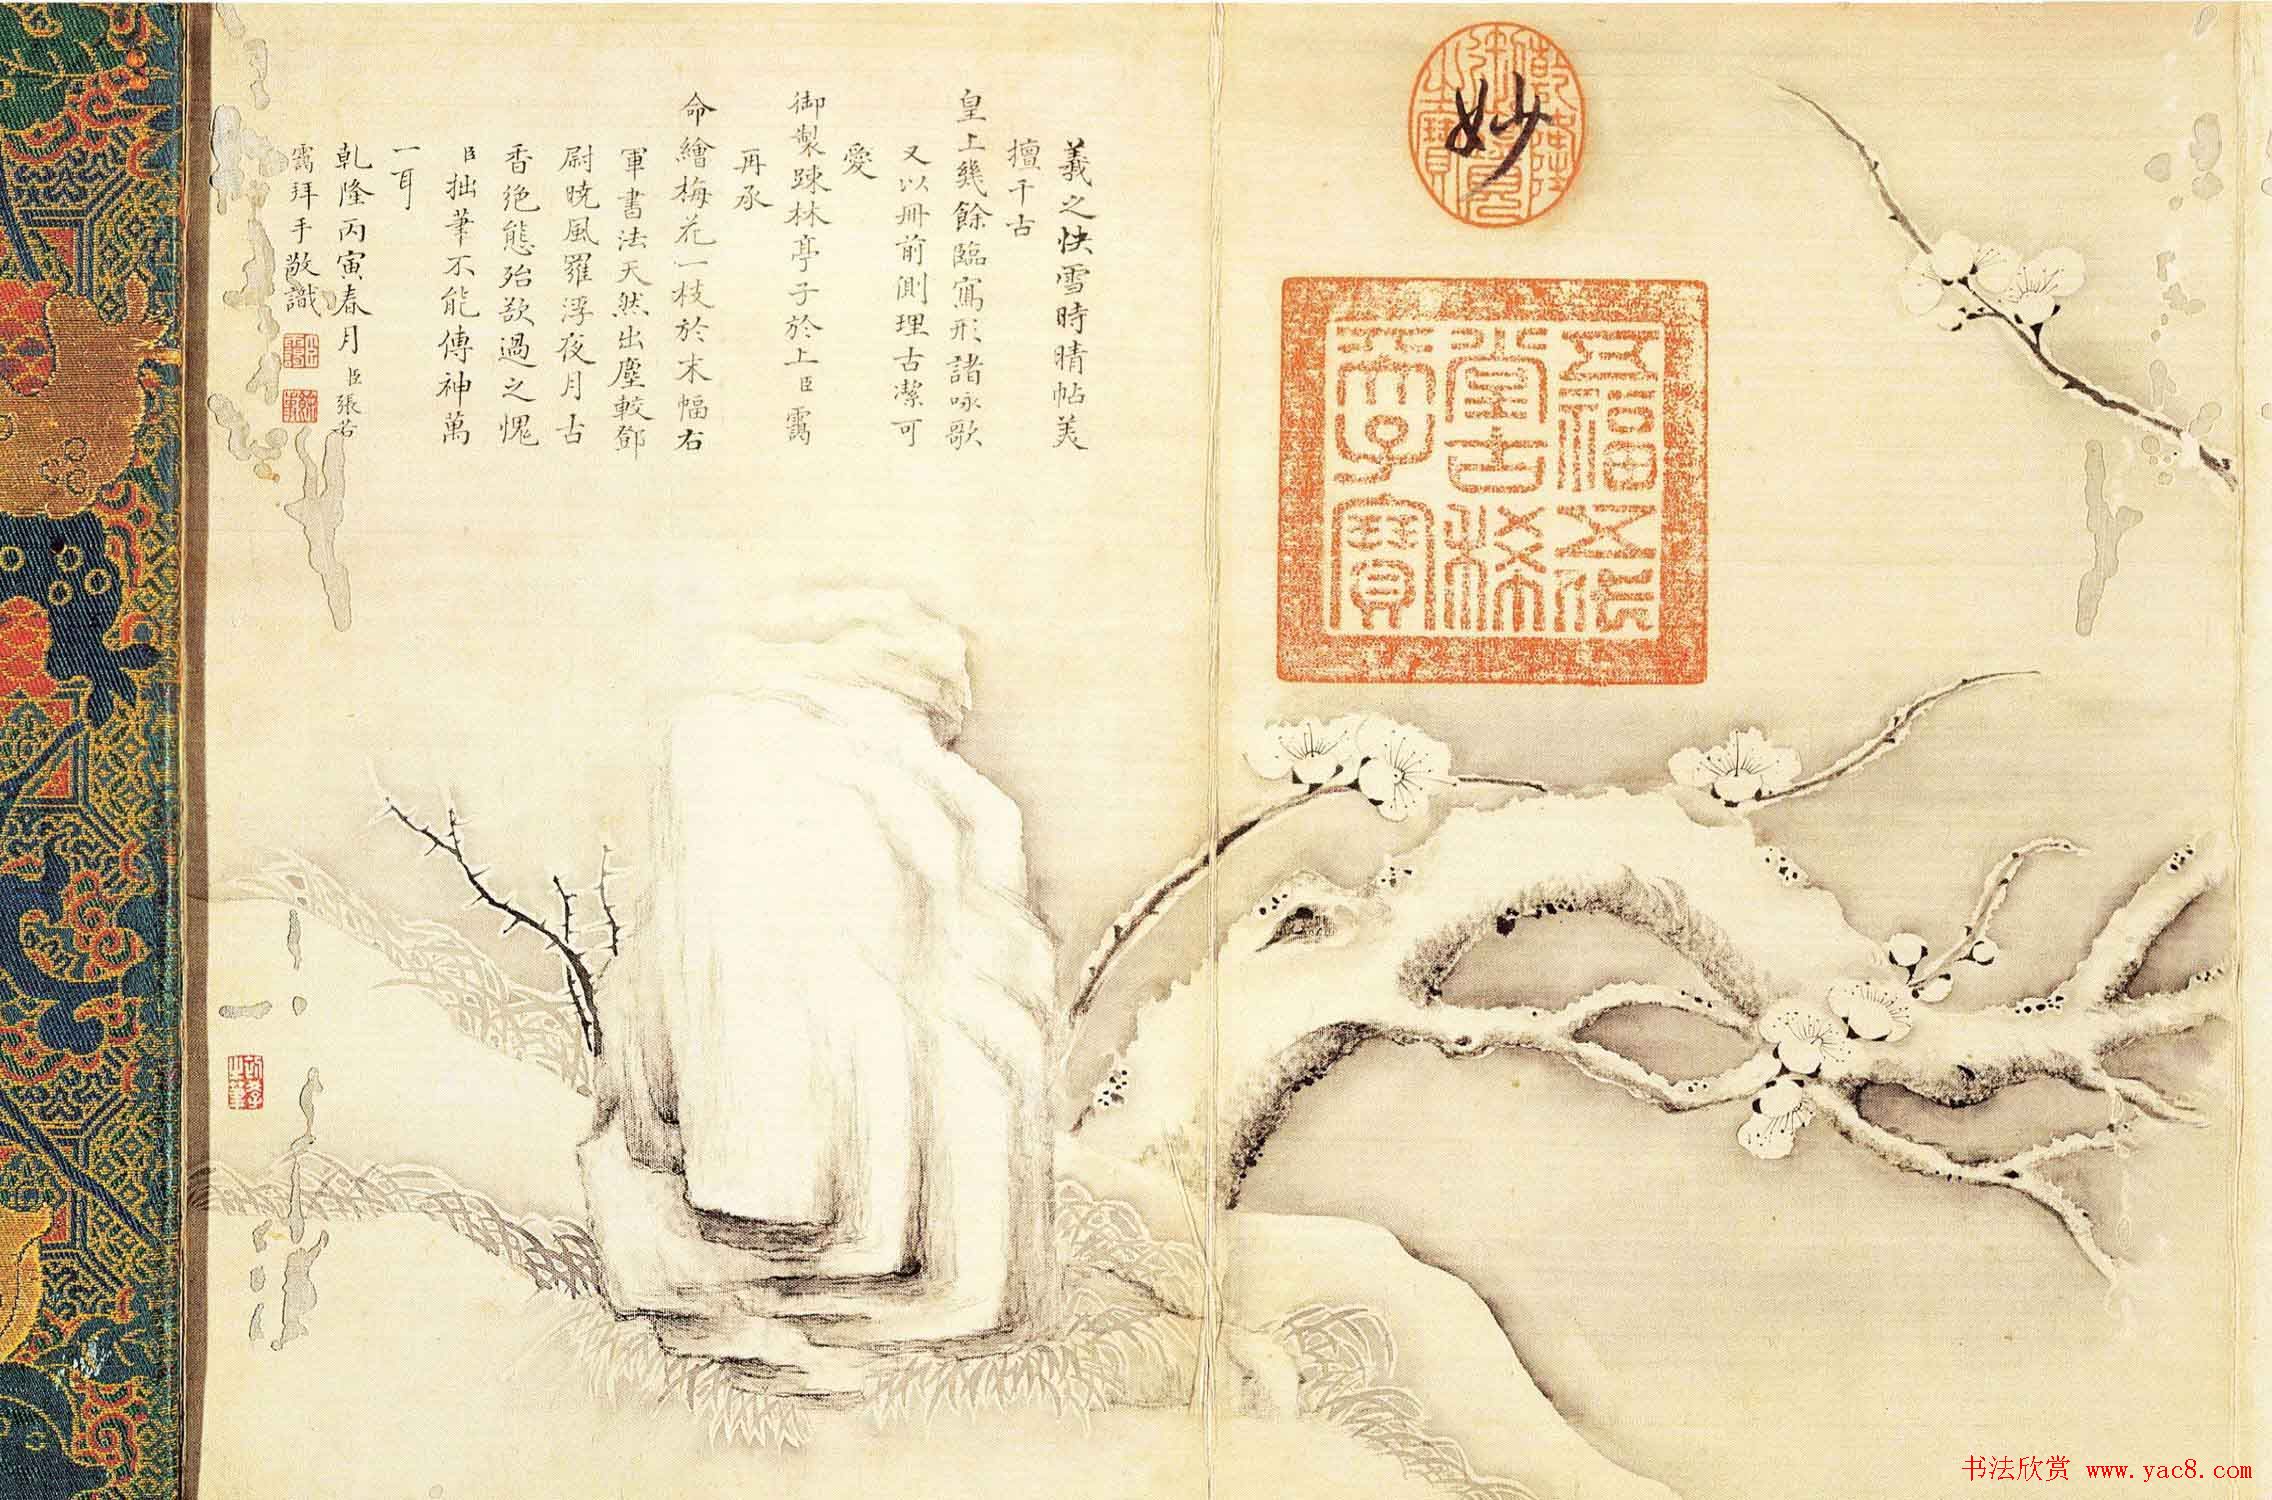 妙
乾隆御覽之寶
五福五代堂古稀天子寶
羲之快雪時晴帖美
擅千古
皇上幾餘臨寫形諸咏歌
又以冊前側理古潔可
愛
御製踈林亭子於上臣靄
再承
命繪梅花一枝於末幅右
軍書法天然出塵較鄧
尉曉風羅浮夜月古
香絕態殆欲過之愧
臣拙筆不能傳神萬
一耳
乾隆丙寅春月臣張若
靄拜手敬識
书法欣赏 www.yac8.com